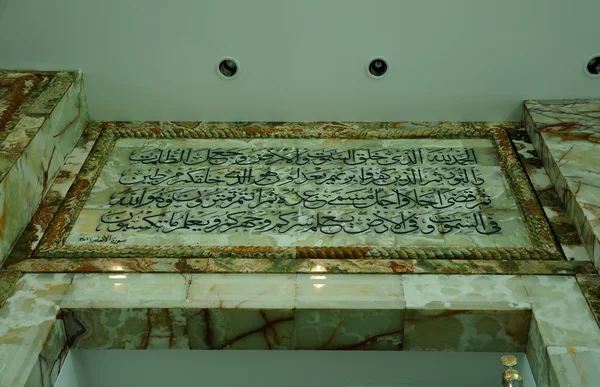 الحمد لله الذى خلق السموت والأرض وجعل الظلمت
والنور ثم الذين كفروا بربهم يعدلون هو الذى خلقكم من طين
ثم قضى أجلا وأجل مسمى عنده ثم أنتم تمترون وهو الله
فى السموت وفى الأرض يعلم سركم وجهركم ويعلم ما تكسبون
سورة الأنعام